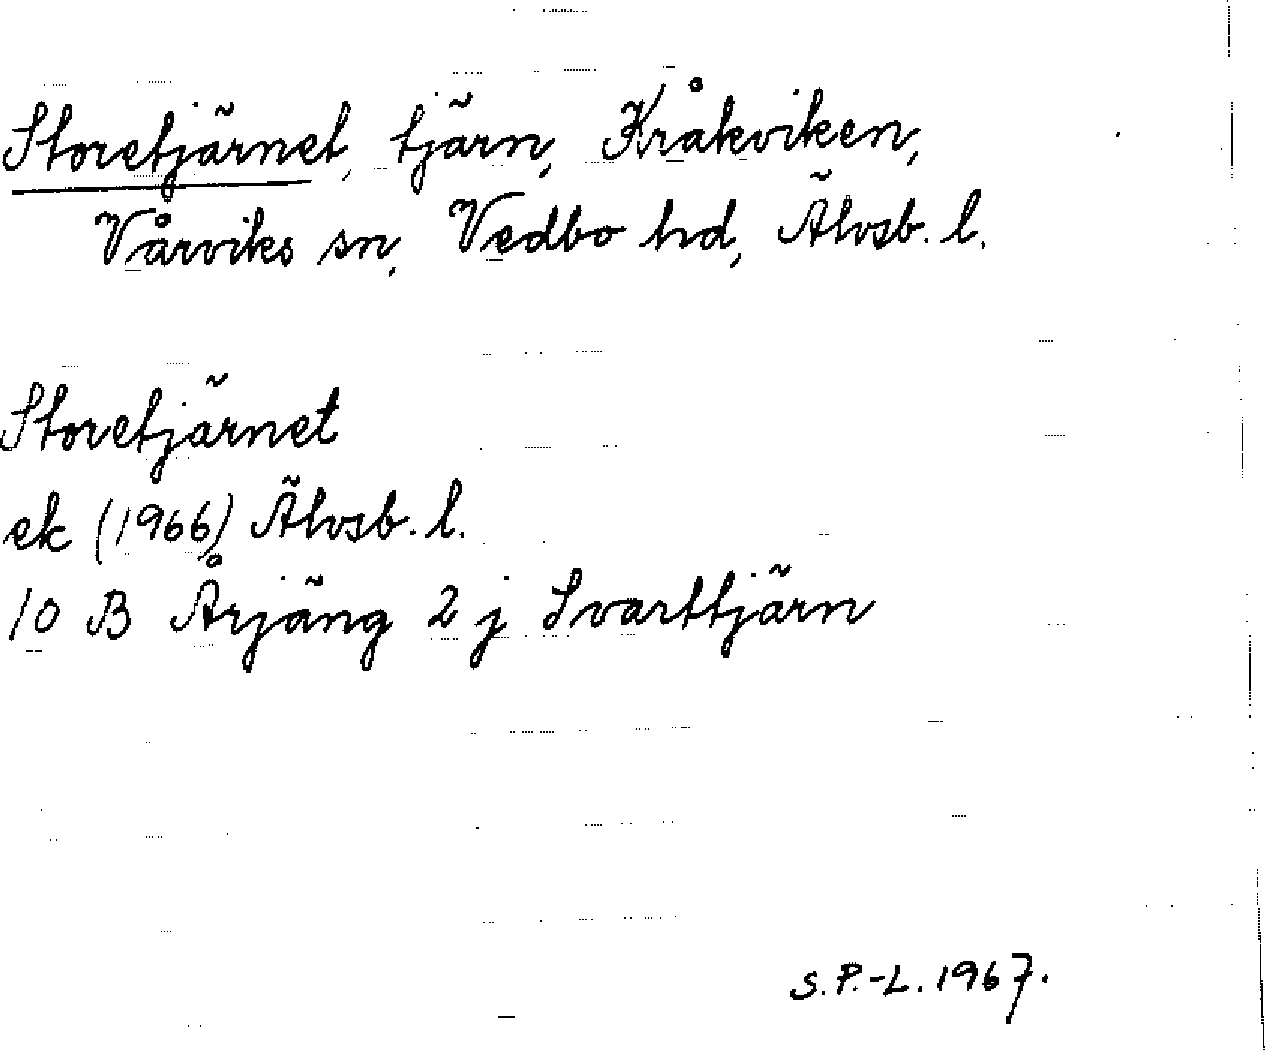 Storetjärnet, tjärn, Kråkviken,
Vårviks sn, Vedbo hd, Älvsb. l.
Storetjärnet
ek (1966) Älvsb. l.
10 B Årjäng 2 j Svarttjärn
S.P.-L. 1967.